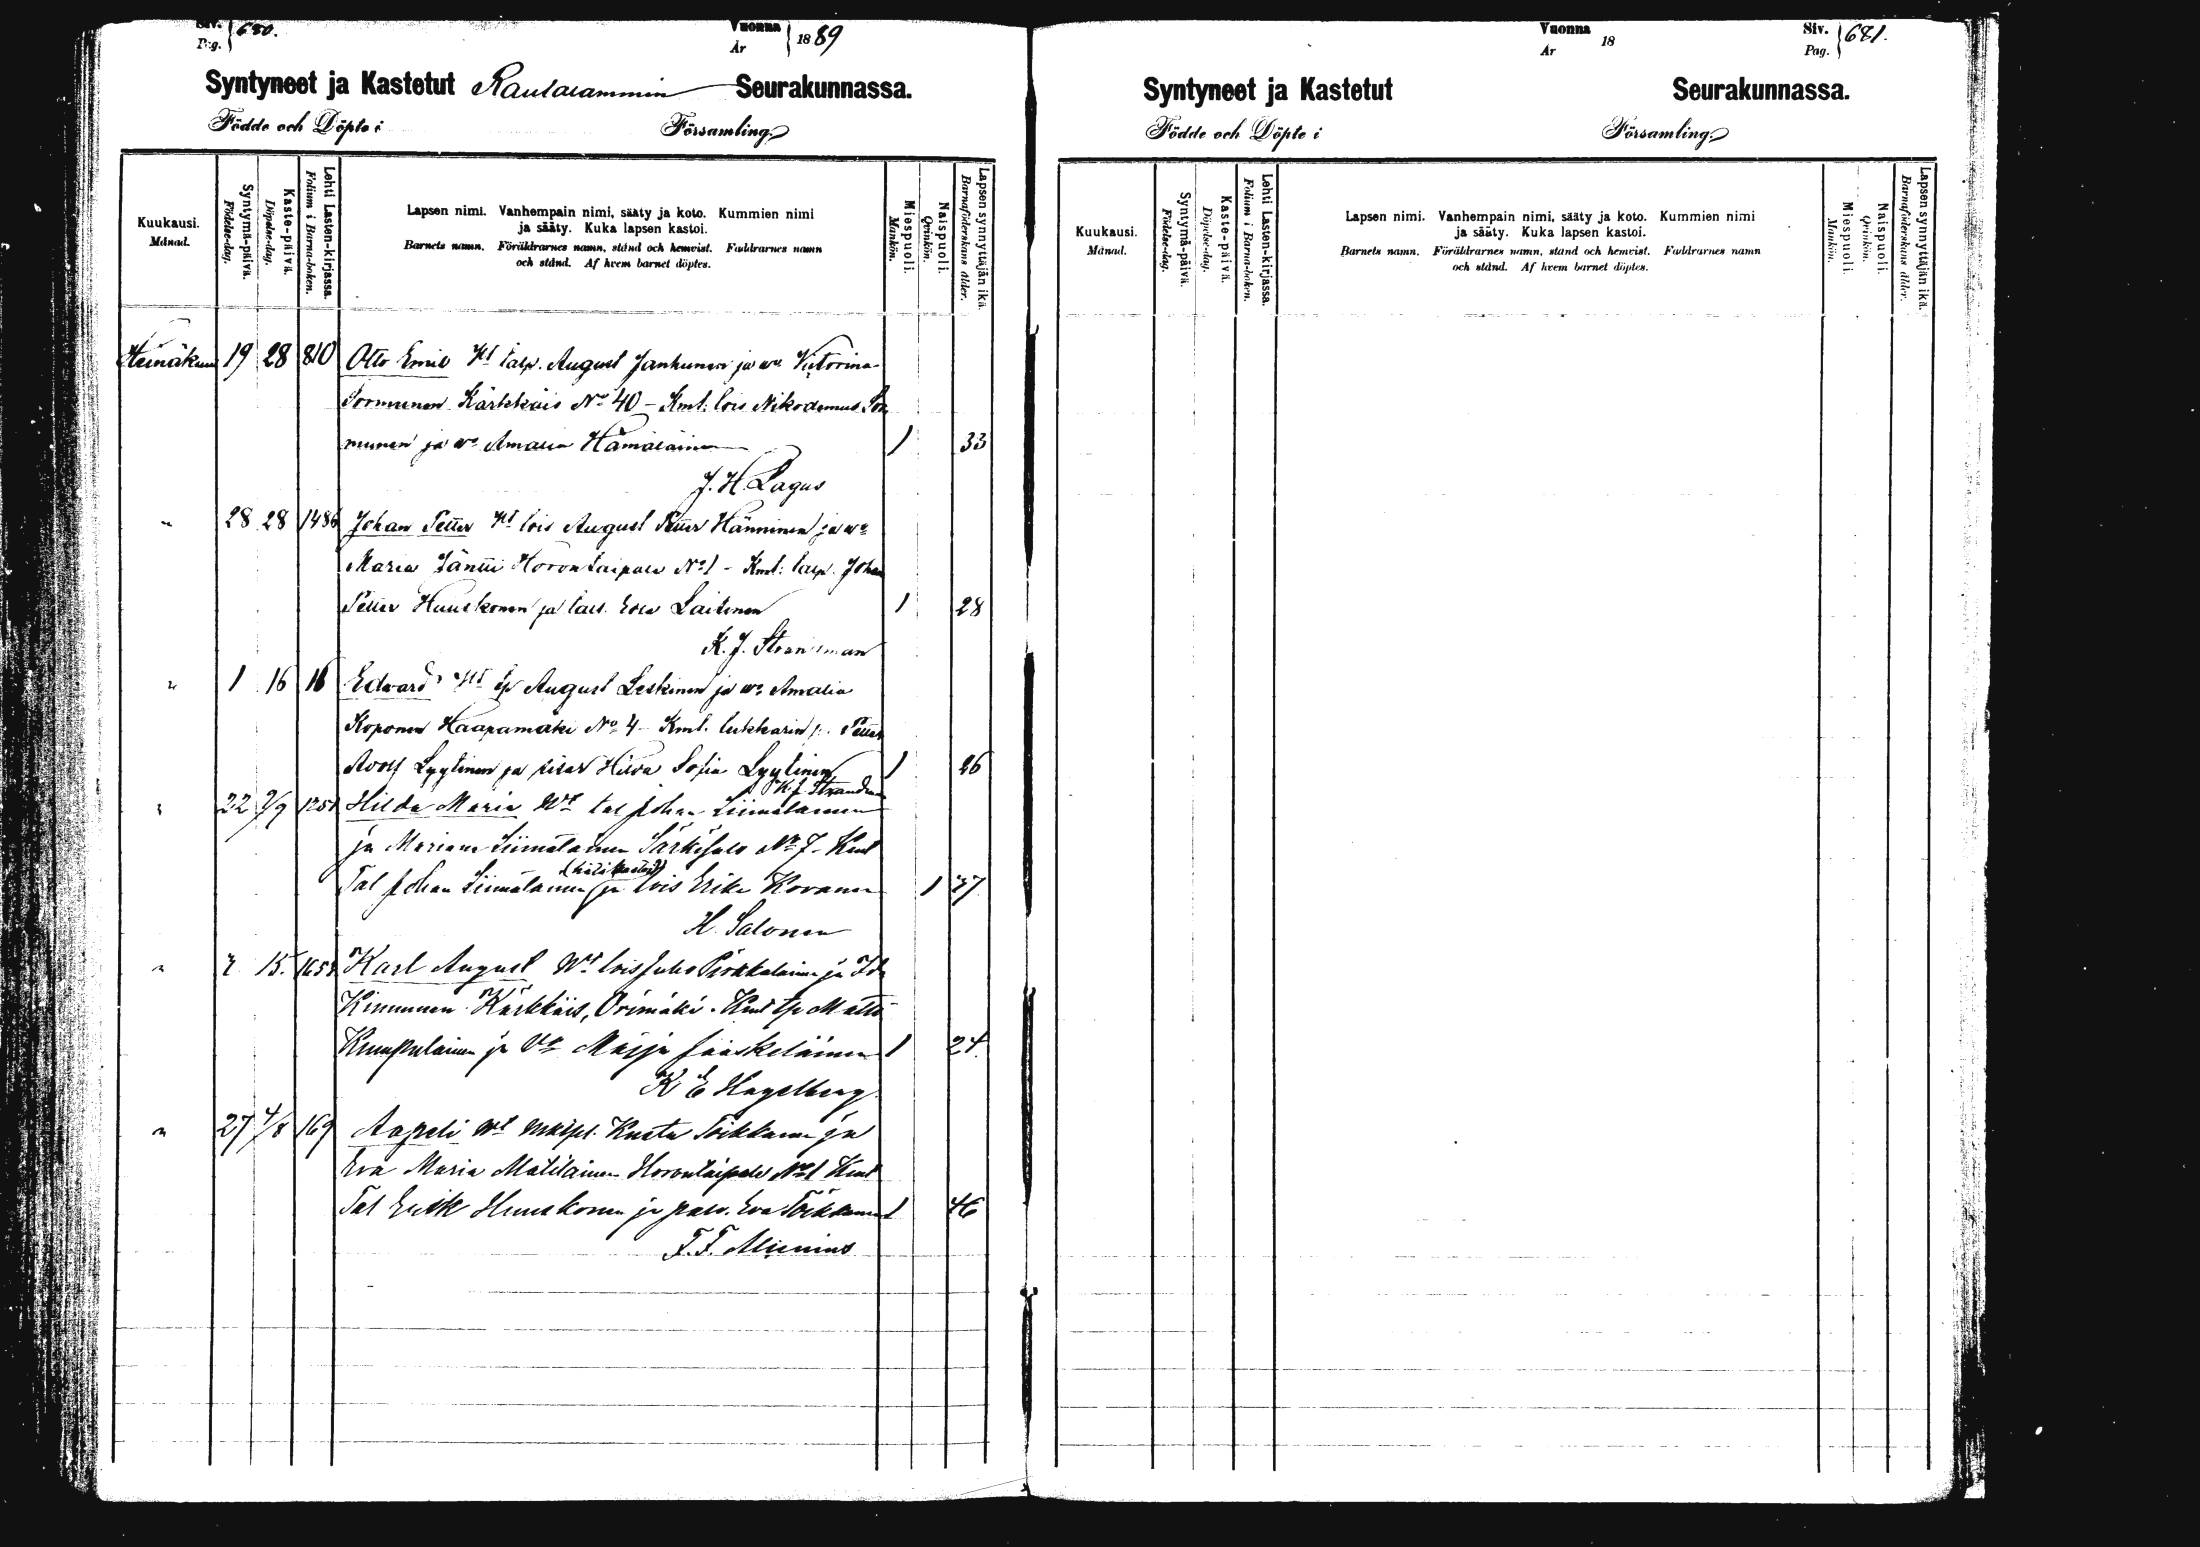 Siv. Pag. 680.
Vuonna År 1889
Syntyneet ja Kastetut Rautalammin Seurakunnassa.
Födde och Döpte i Församling.
Kuukausi. Månad.
Syntymä-päivä. Födelse-dag.
Kaste-päivä. Döpelse-dag.
Lehti Lasten-kirjassa. Folium i Barna-boken.
Lapsen nimi. Vanhempain nimi, sääty ja koto. Kummien nimi
ja sääty. Kuka lapsen kastoi.
Barnets namn. Föräldrarnes namn, stånd och hemvist. Faddrarnes namn
och stånd. Af hvem barnet döptes.
Miespuoli. Mankön.
Naispuoli. Qvinkön.
Lapsen synnyttäjän ikä. Barnaföderskans ålder.
Heinäkuu 19 28 810 Otto Emil Talp. August Janhunen ja Victorina
Sormunen Kärkkäis No 40 - Kmt. lois Nikodemus Sor
munen ja Amalia Hämäläinen 1 33
J. H. Lagus
" 28 28 1486 Johan Petter lois August Petter Hänninen ja
Maria Jäntti Horontaipale No 1 - Kmt: talp. Johan
Petter Huuskonen ja Eva Laitinen 1 28
K. J. Strandman
" 1 16 16 Edvard August Leskinen ja Amalia
Koponen Haapamäki No 4 - Kmt. lukkarin p. Petter
Adolf Lyytinen ja sisar Hilda Sofia Lyytinen 1 26
K. J. Strandman
" 22 Hilda Maria tal Johan Liimatainen
ja Mariana Liimatainen Särkisalo No 7 - Kmt
(hätäkastoi)
Tal Johan Liimatainen ja lois Erika Kovanen 1 37
H. Salonen
" 15. Karl August lois Juho Pirkkalainen ja Ida
Kinnunen Kärkkäis, Orimäki. Kmt tp Matti
Kumpulainen ja Maija Jääskeläinen 1 24.
K E Hagelberg
" 27 4/8 169 Aapeli Kusta Toikkanen ja
Eva Maria Matilainen Horontaipale No 1 Kmt
Tal Erik Huuskonen ja palv. Eva Toikkanen 1 46
Vuonna År 18
Siv. Pag. 681.
Syntyneet ja Kastetut Seurakunnassa.
Födde och Döpte i Församling.
Kuukausi. Månad.
Syntymä-päivä. Födelse-dag.
Kaste-päivä. Döpelse-dag.
Lehti Lasten-kirjassa. Folium i Barna-boken.
Lapsen nimi. Vanhempain nimi, sääty ja koto. Kummien nimi
ja sääty. Kuka lapsen kastoi.
Barnets namn. Föräldrarnes namn, stånd och hemvist. Faddrarnes namn
och stånd. Af hvem barnet döptes.
Miespuoli. Mankön.
Naispuoli. Qvinkön.
Lapsen synnyttäjän ikä. Barnaföderskans ålder.